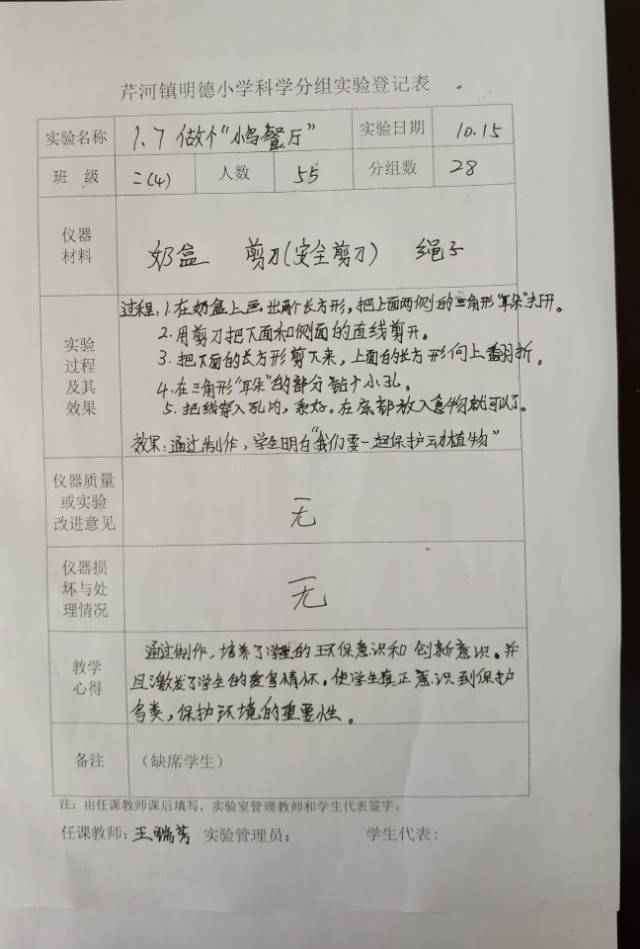 芹河镇明德小学科学分组实验登记表
实验名称 1.7 做个“小鸟餐厅” 实验日期 10.15
班 级 二(4) 人数 55 分组数 28
仪器
材料
奶盒 剪刀(安全剪刀) 绳子
实验
过程
及其
效果
过程:1.在奶盒上画出两个长方形,把上面两侧的三角形“耳朵”打开。
2.用剪刀把下面和侧面的直线剪开。
3.把下面的长方形剪下来,上面的长方形向上翻折。
4.在三角形“耳朵”的部分钻个小孔。
5.把线穿入孔内,系好。在底部放入食物就可以了。
效果:通过制作,学生明白“我们要一起保护动植物”
仪器质量
或实验
改进意见
无
仪器损
坏与处
理情况
无
教学
心得
通过制作,培养了学生的环保意识和创新意识。并
且激发了学生的爱鸟情怀。使学生真正意识到保护
鸟类,保护环境的重要性。
备注 (缺席学生)
注:由任课教师课后填写,实验室管理教师和学生代表签字。
任课教师:王瑞芳 实验管理员: 学生代表: